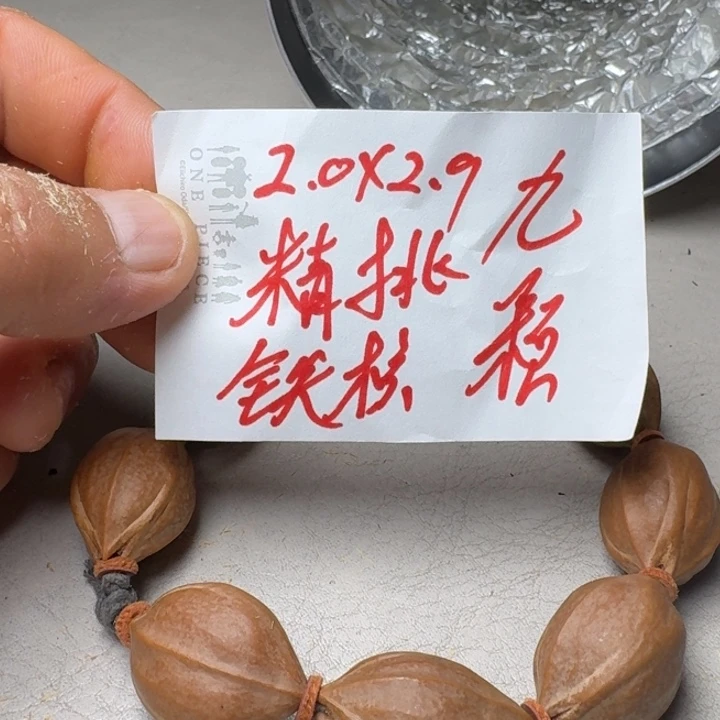 2.0X2.9
精挑
铁核
九
颗
ONE PIECE